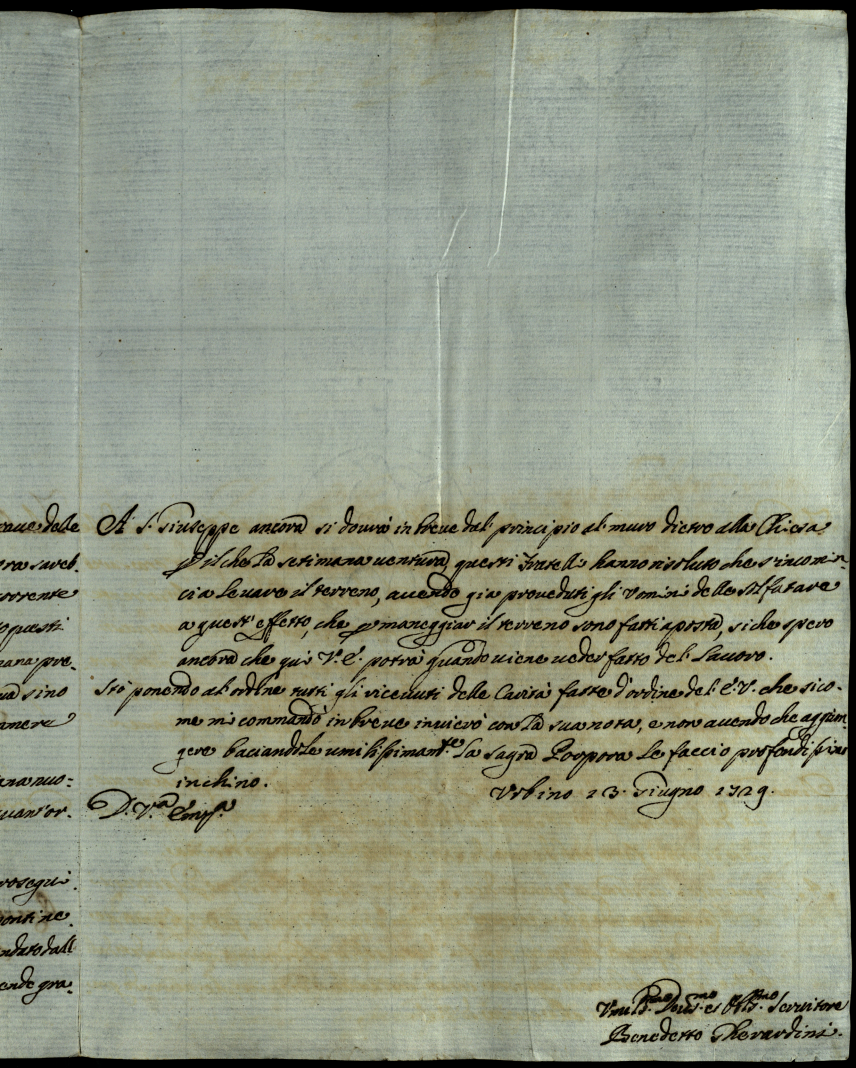 raue delle
ora sareb.
orrente
questi
mana pre-
sino
camera
ana nuo-
uant'or.
rosegui
pontine
ndato dall
ende gra.
A S. Giuseppe ancora si dourà in breue dal principio al muro dietro alla Chiesa
p il che la settimana uentura questi Fratelli hanno risoluto che s'incomin-
cia leuare il terreno, auendo gia proueduti gli Vomini delle
a quest'effetto, che p maneggiar il terreno sono fatti aposta, siche spero
ancora che qui V. E. potrà quando uiene ueder fatto del lauoro.
Stò ponendo al ordine tutti gli riceuuti delle Carità fatte d'ordine del E. V. che sico-
me mi commandò in breue inuierò con la sua nota, e non auendo che aggiun-
gere baciandole umilissimam.te la sagra Porpora le faccio profondissimo
inchino.
Vrbino 13 Giugno 1729.
D. V.ra Emza
Vmil.mo Deu.mo et Obb.mo Seruitore
Benedetto Gherardini.